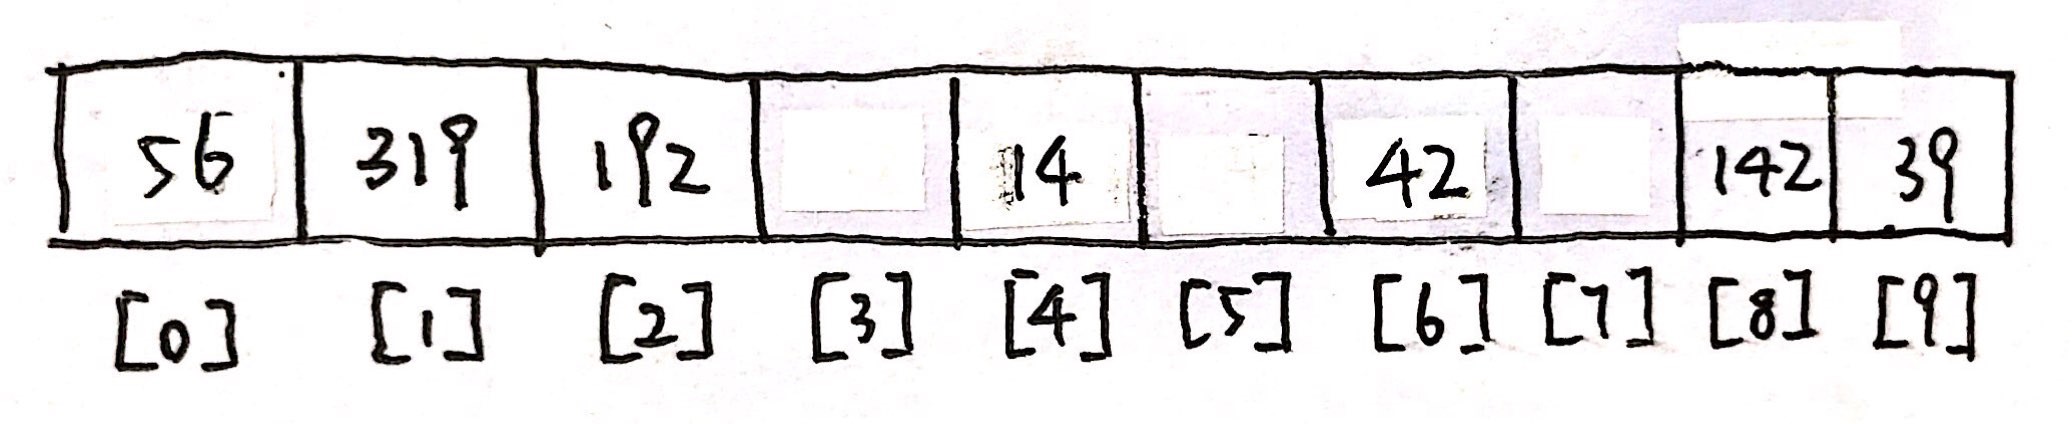 56 319 192 14 42 142 39
[0] [1] [2] [3] [4] [5] [6] [7] [8] [9]